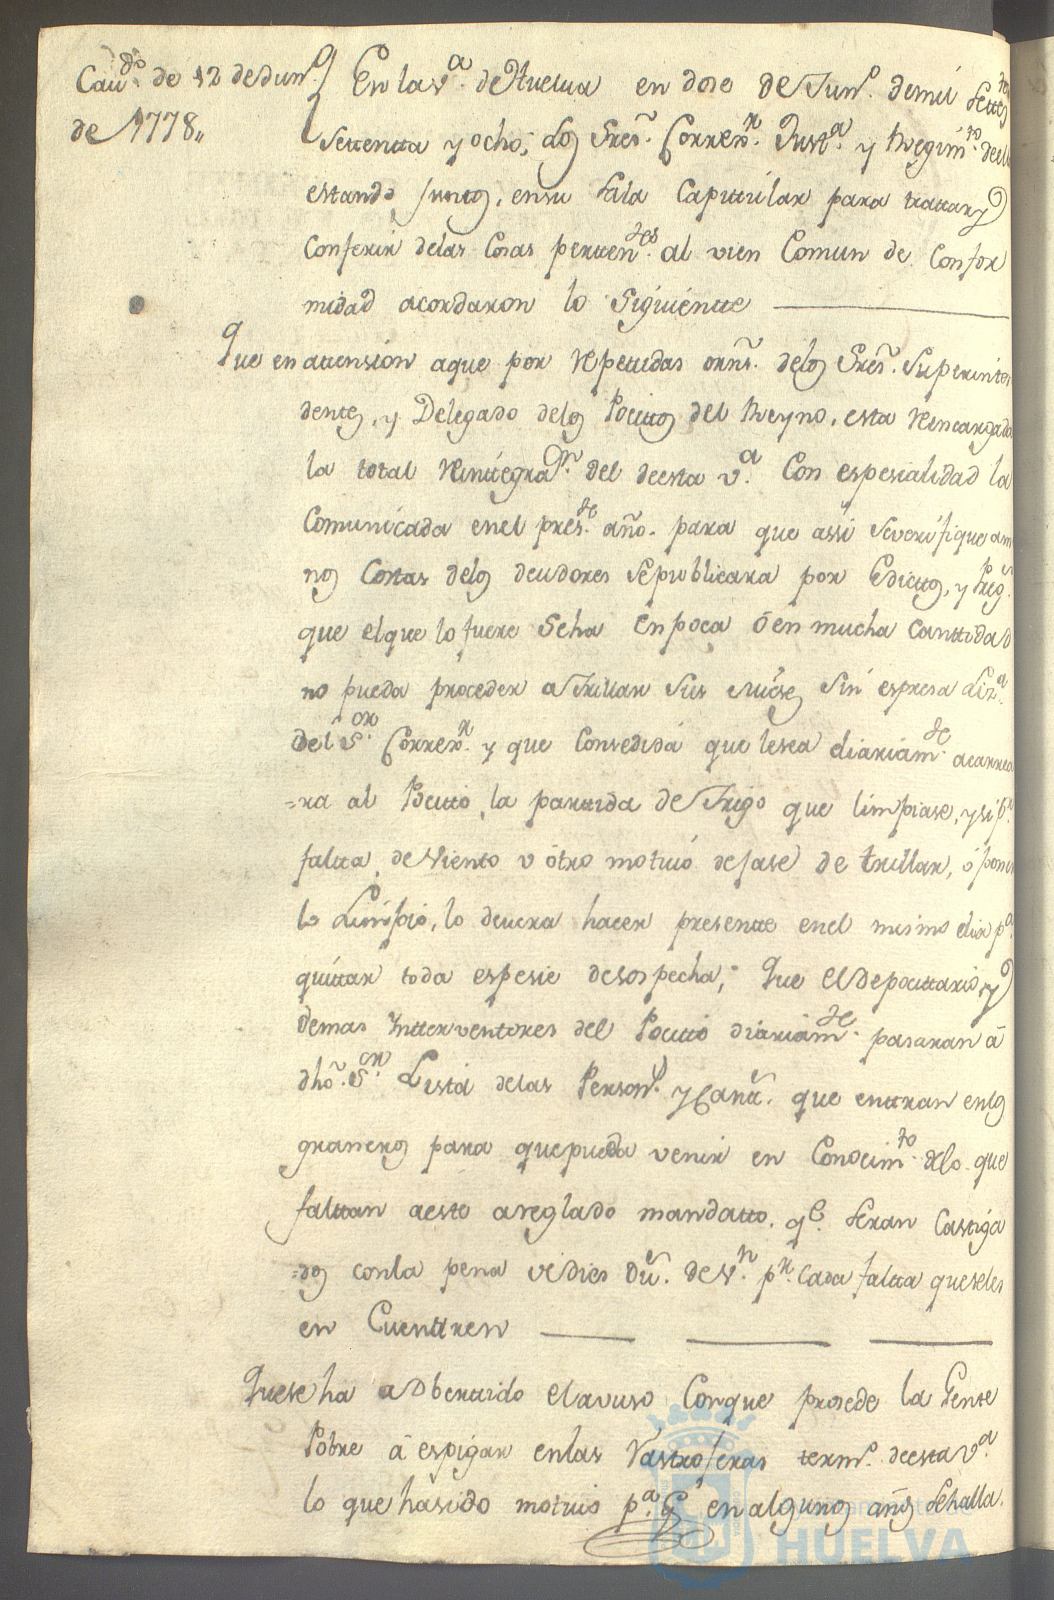 Cau.do de 12 de Jun.o
de 1778,,
En la v.a de Huelua en dose de Jun.o de mil settez.tos
settentta y ocho; Los Sres. Correx.r Just.a y Regim.to de ella
estando juntos, en su sala Capittular para trattar y
Conferir de las Cosas pertten.tes al vien Comun de Confor
midad acordaron lo siguientte
Que en attension a que por rrepettidas orns. de los Sres. Superinten
dentes, y Delegado de los Pocittos del Reyno, esta rrencargada
la total rreinttegra.on del de esta v.a Con espesialidad la
Comunicada en el pres.te año. para que assi se verifique a me
nos Costas de los deudores se publicara por Edictos, y Preg.s
que el que lo fuere se ha en poca ó en mucha canttidad
no pueda proceder a Trillar sus Mieses sin espresa Liz.a
del S.or Correx.r y que Consedida que le sea diariam.te acarrea
=ra al Pocitto, la parttida de Trigo que limpiase, y si p.r
faltta de Viento v otro motiuo dejase de trillar, ó poner
lo Limpio, lo deuera hacer presentte en el mismo dia p.a
quittar toda espesie de sospecha; Que el Depocittario, y
demas Intterventores del Pocitto diariam.te pasaran â
dhô. S.or Lista de las Person.s y Cant.s que enttran en los
graneros para que pueda venir en Conocim.to de lo que
falttan a este arreglado mandatto. q.e seran Castiga
=dos con la pena de dies Du.s de v.n p.r cada faltta que se les
en Cuenttren
Que se ha adberttido el avuso Con que prosede la Gente
Pobre â espigar en las Rastrojeras term.o de esta v.a
lo que ha sido motiuo p.a q.e en algunos años se halla.
Ayuntamiento de
HUELVA